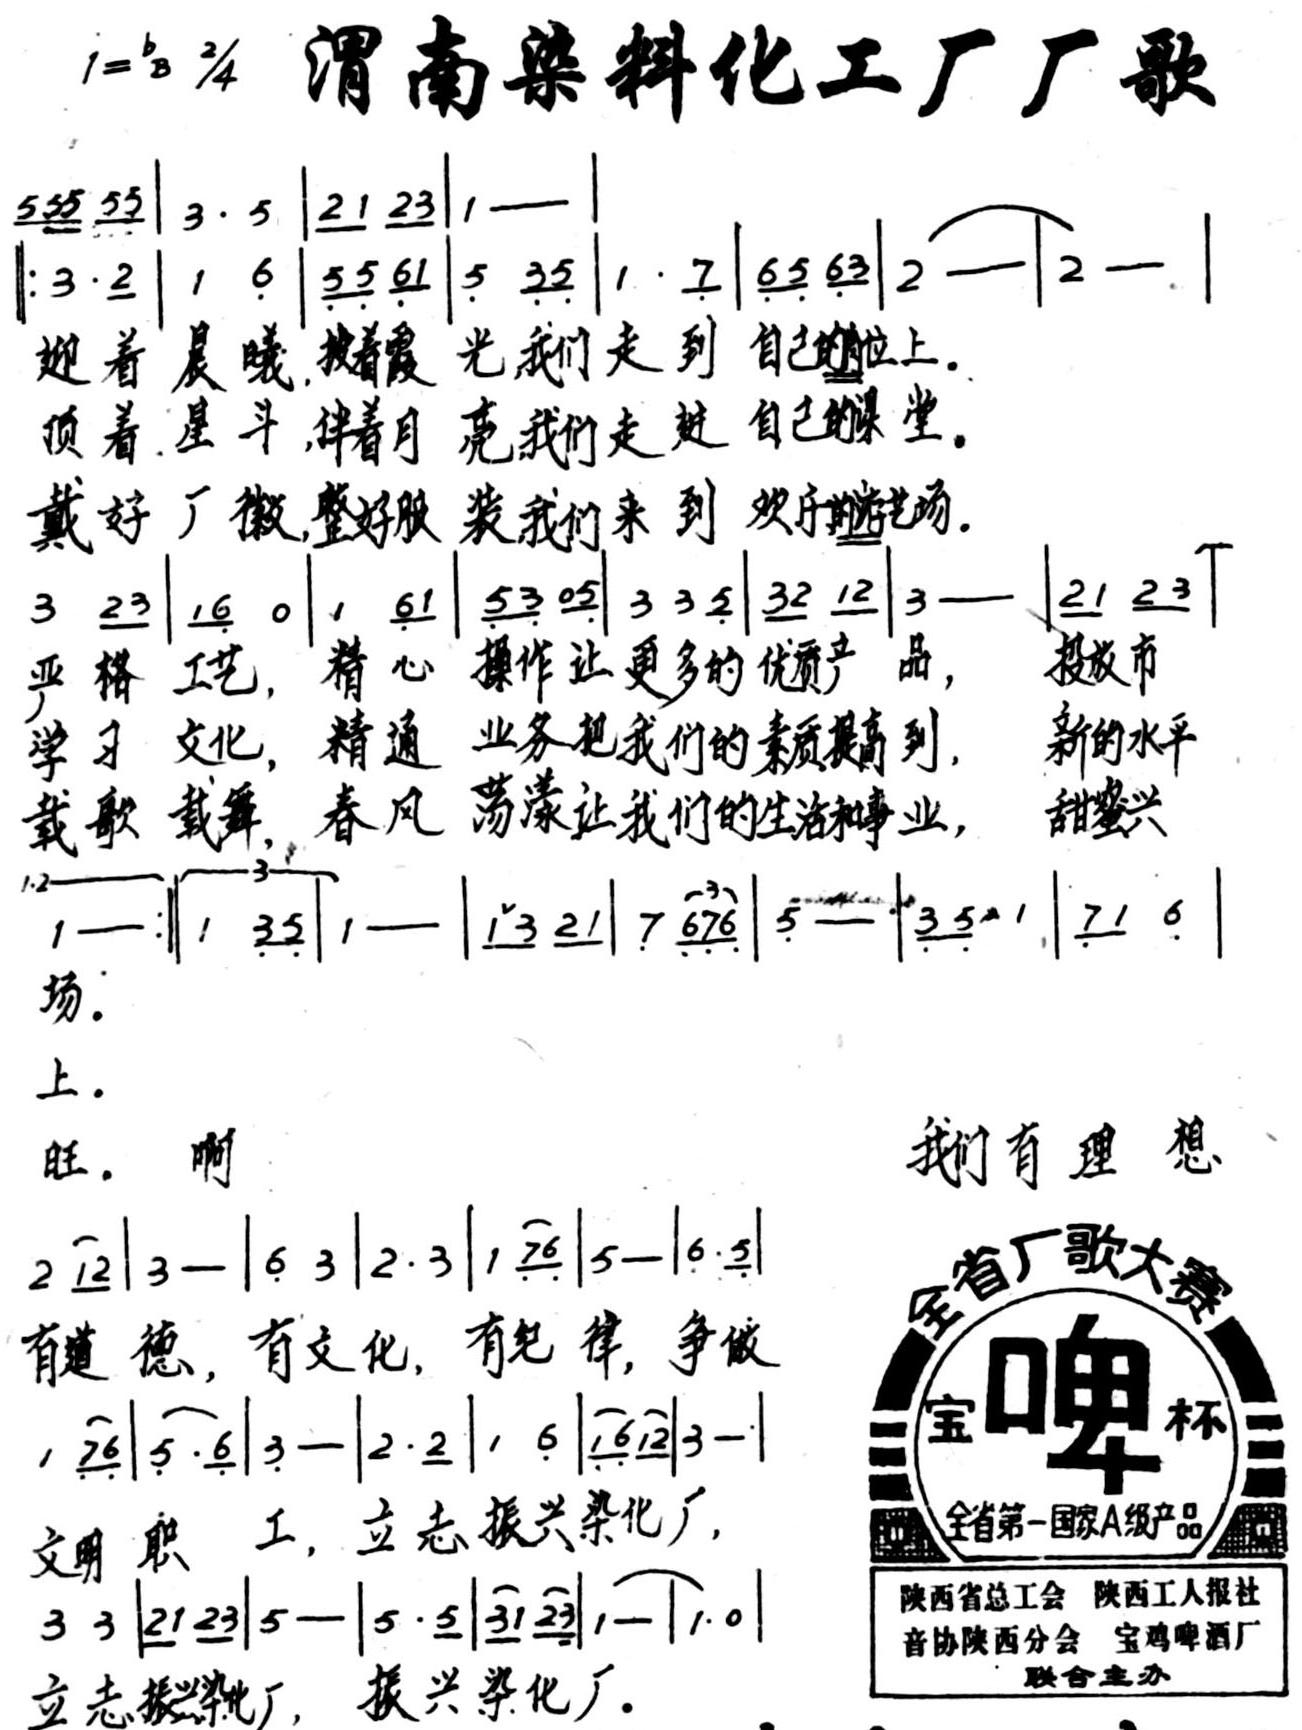 1=♭B 2/4 渭南染料化工厂厂歌
555 55 | 3 · 5 | 21 23 | 1 — |
‖: 3 · 2 | 1 6 | 55 61 | 5 35 | 1 · 7 | 65 63 | 2 — | 2 — |
迎着晨曦,披着霞光,我们走到自己的岗位上。
顶着星斗,伴着月亮,我们走进自己的课堂。
戴好厂徽,整好服装,我们来到欢乐的游艺场。
3 23 | 16 0 | 1 61 | 53 05 | 3 3 5 | 32 12 | 3 — | 21 23 |
严格工艺,精心操作让更多的优质产品,投放市
学习文化,精通业务把我们的素质提高到,新的水平
载歌载舞,春风荡漾让我们的生活和事业,甜蜜兴
1.2 3
1 — :‖ 1 35 | 1 — | 1 3 21 | 7 676 | 5 — | 35 1 | 71 6 |
场。
上。
旺。啊 我们有理想
2 12 | 3 — | 6 3 | 2 · 3 | 1 76 | 5 — | 6 · 5 |
有道德,有文化,有纪律,争做
1 76 | 5 · 6 | 3 — | 2 · 2 | 1 6 | 16 12 | 3 — |
文明职工,立志振兴染化厂,
3 3 | 21 23 | 5 — | 5 · 5 | 31 23 | 1 — | 1 · 0 |
立志振兴染化厂,振兴染化厂。
全省厂歌大赛
宝啤杯
全省第一国家A级产品
陕西省总工会 陕西工人报社
音协陕西分会 宝鸡啤酒厂
联合主办